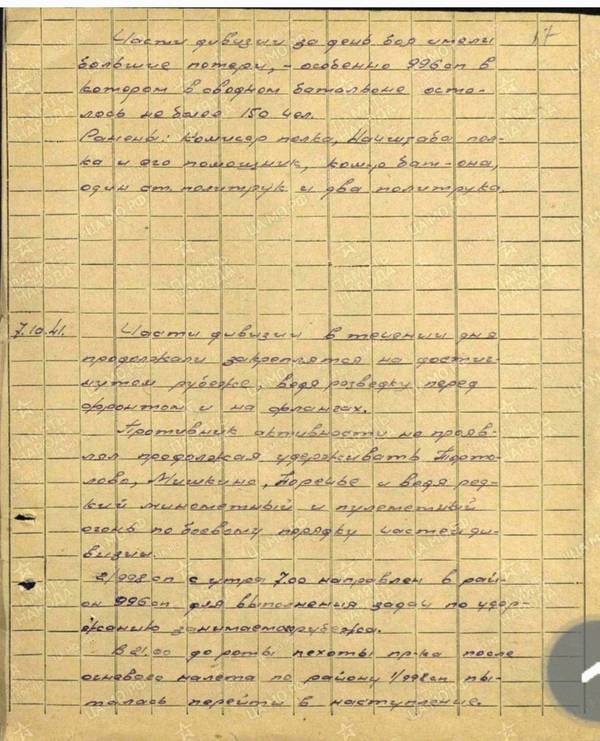 17
Части дивизии за день боя имели
большие потери, - особенно 996 сп в
котором в сводном батальоне оста-
лось не более 150 чел.
Ранены: комисар полка, Начштаба пол-
ка и его помощник, комр бат-она,
один ст. политрук и два политрука.
7.10.41. Части дивизии в течении дня
продолжали закреплятся на достиг-
нутом рубеже, ведя розведку перед
фронтом и на флангах.
Противник активности не прояв-
лял продолжая удерживать Порто-
лово, Мишкино, Поречье и ведя ред-
кий минометный и пулеметный
огонь по боевому порядку частей ди-
визии.
2/998 сп с утра 7.00 направлен в рай-
он 996 сп для выполнения задач по удер-
жанию занимаемого рубежа.
В 21.00 до роты пехоты пр-ка после
огневого налета по району 1/998 сп пы-
талась перейти в наступление.
ПАМЯТЬ НАРОДА
ЦАМО.РФ